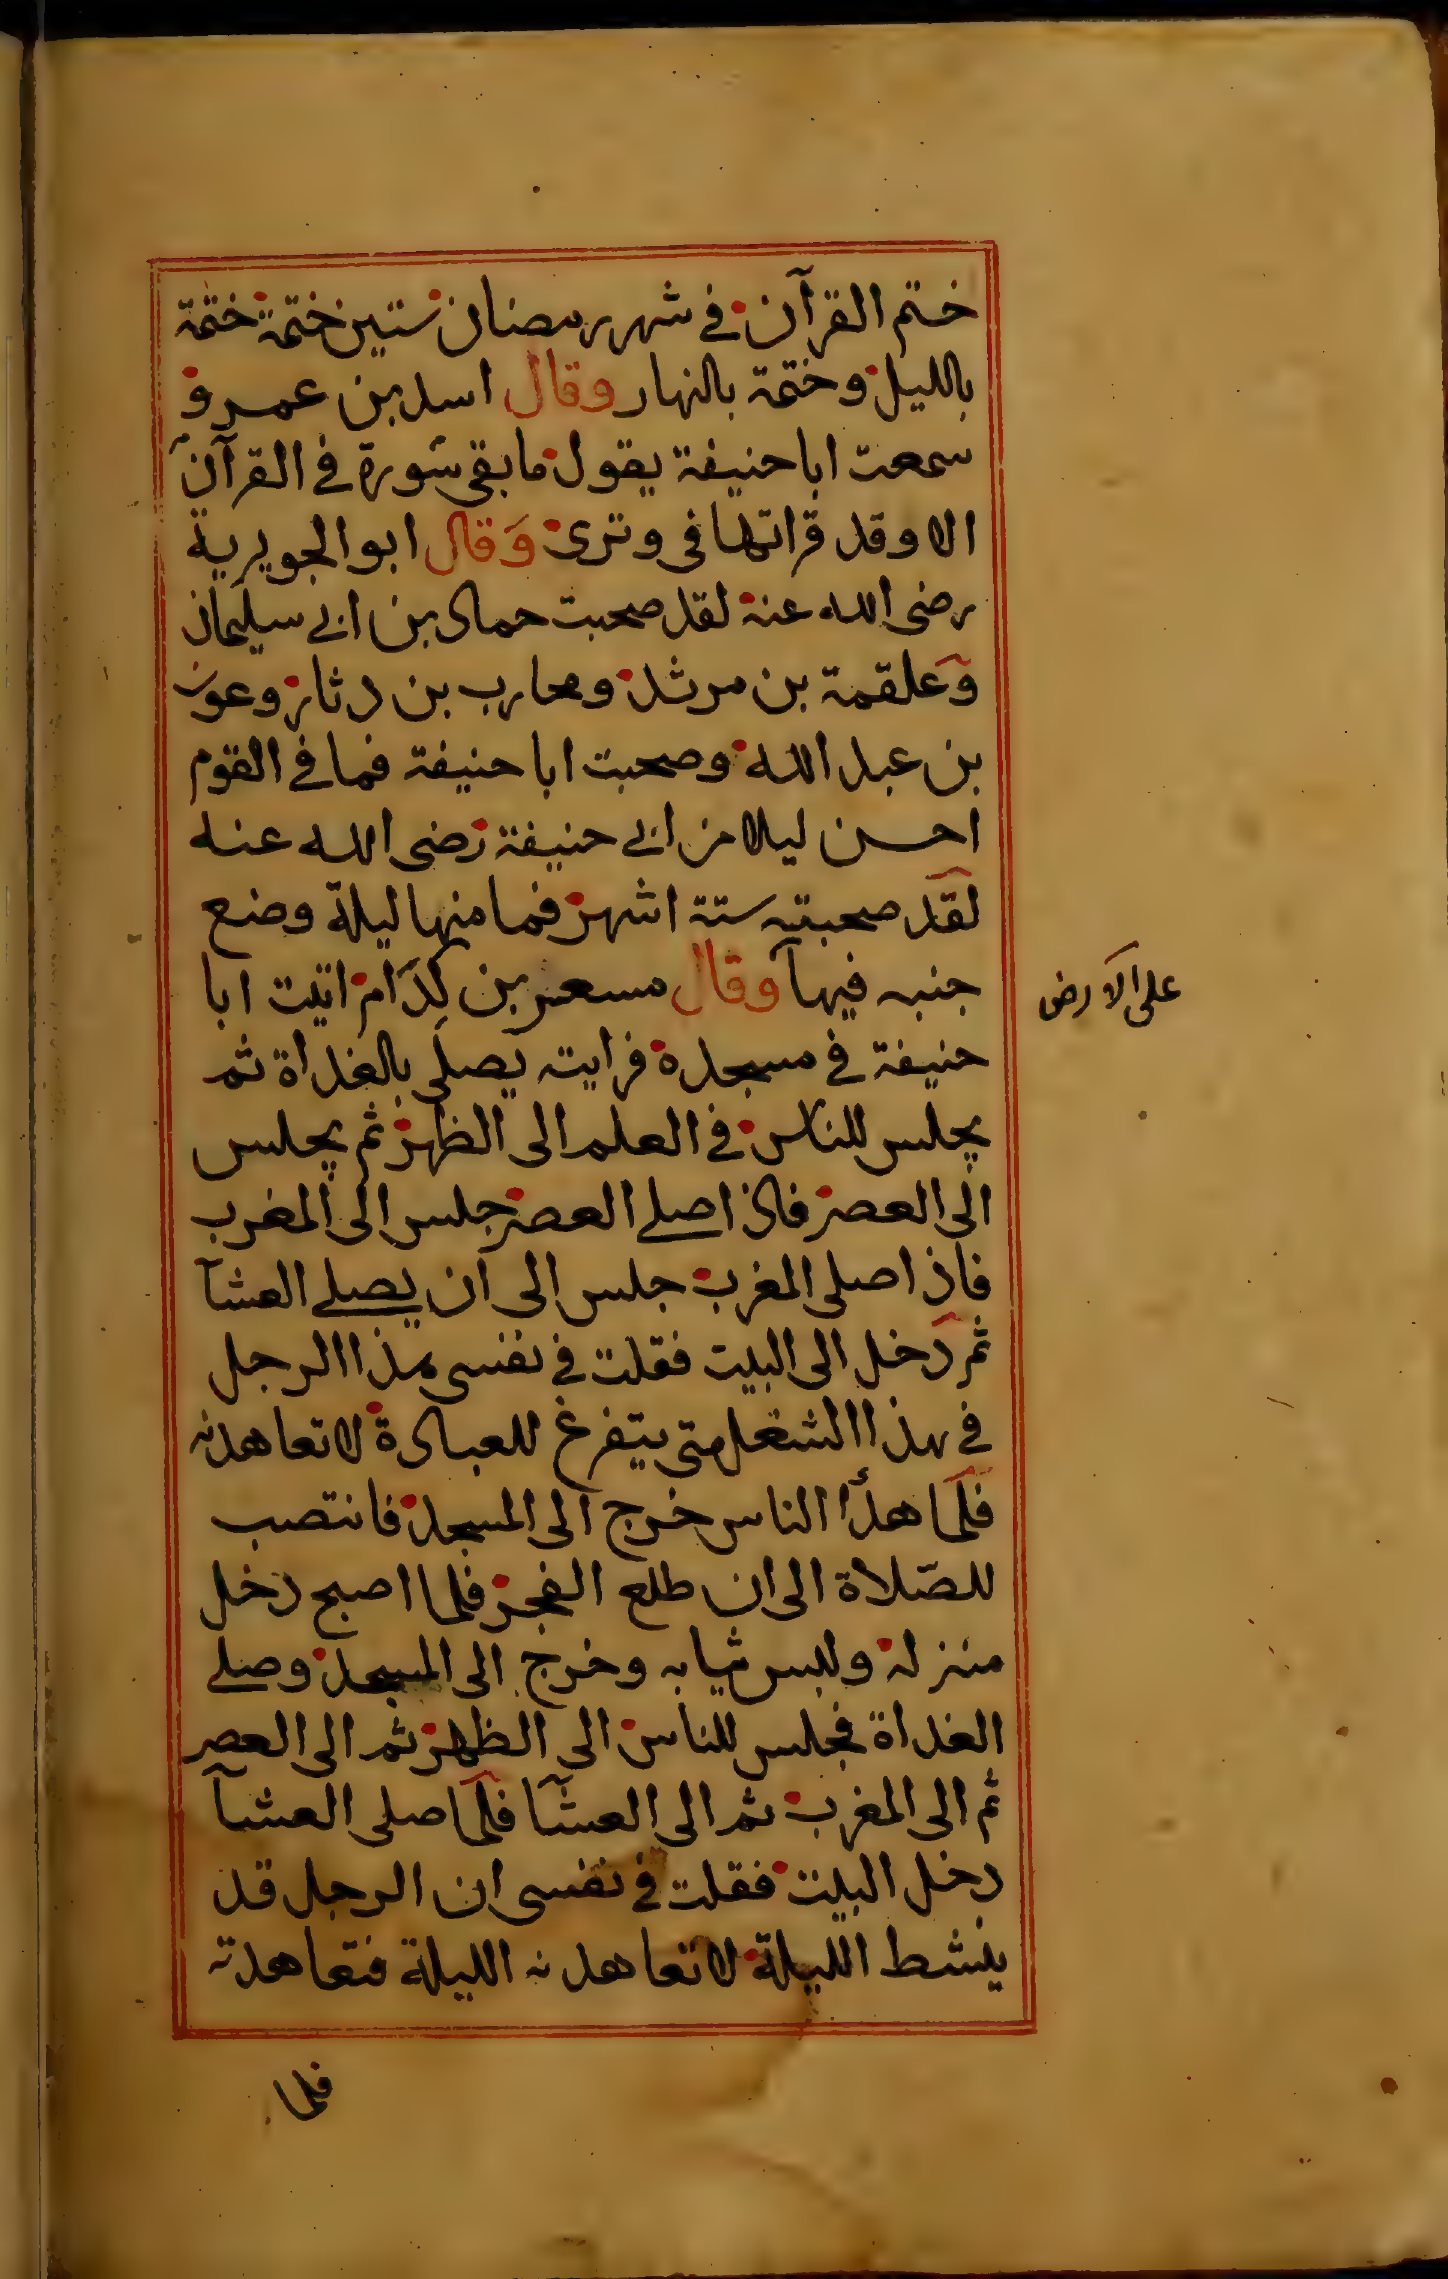 ختم القرآن في شهر رمضان ستين ختمة ختمة
بالليل وختمة بالنهار وقال اسد بن عمرو
سمعت ابا حنيفة يقول ما بقى سورة في القرآن
الا وقد قراتها فى وترى وَقال ابو الجويرية
رضى الله عنه لقد صحبت حماد بن ابى سليمان
وَعلقمة بن مرثد ومحارب بن دثار وعون
بن عبد الله وصحبت ابا حنيفة فما في القوم
احسن ليلا من ابى حنيفة رضى الله عنه
لقد صحبته ستة اشهر فما منها ليلة وضع
جنبه فيها وقال مسعر بن كدام اتيت ابا
على الارض
حنيفة في مسجده فرايته يصلى بالغداة ثم
يجلس للناس في العلم الى الظهر ثم يجلس
الى العصر فاذا صلى العصر جلس الى المغرب
فاذا صلى المغرب جلس الى ان يصلى العشآ
ثم دخل الى البيت فقلت في نفسى هذا الرجل
في هذا الشغل متى يتفرغ للعبادة لاتعاهدنه
فلما هدأ الناس خرج الى المسجد فانتصب
للصّلاة الى ان طلع الفجر فلما اصبح دخل
منزله ولبس ثيابه وخرج الى المسجد وصلى
الغداة فجلس للناس الى الظهر ثم الى العصر
ثم الى المغرب ثم الى العشآ فلمّا صلى العشآ
دخل البيت فقلت في نفسى ان الرجل قد
ينشط الليلة لاتعاهدنه الليلة فتعاهدته
فلما